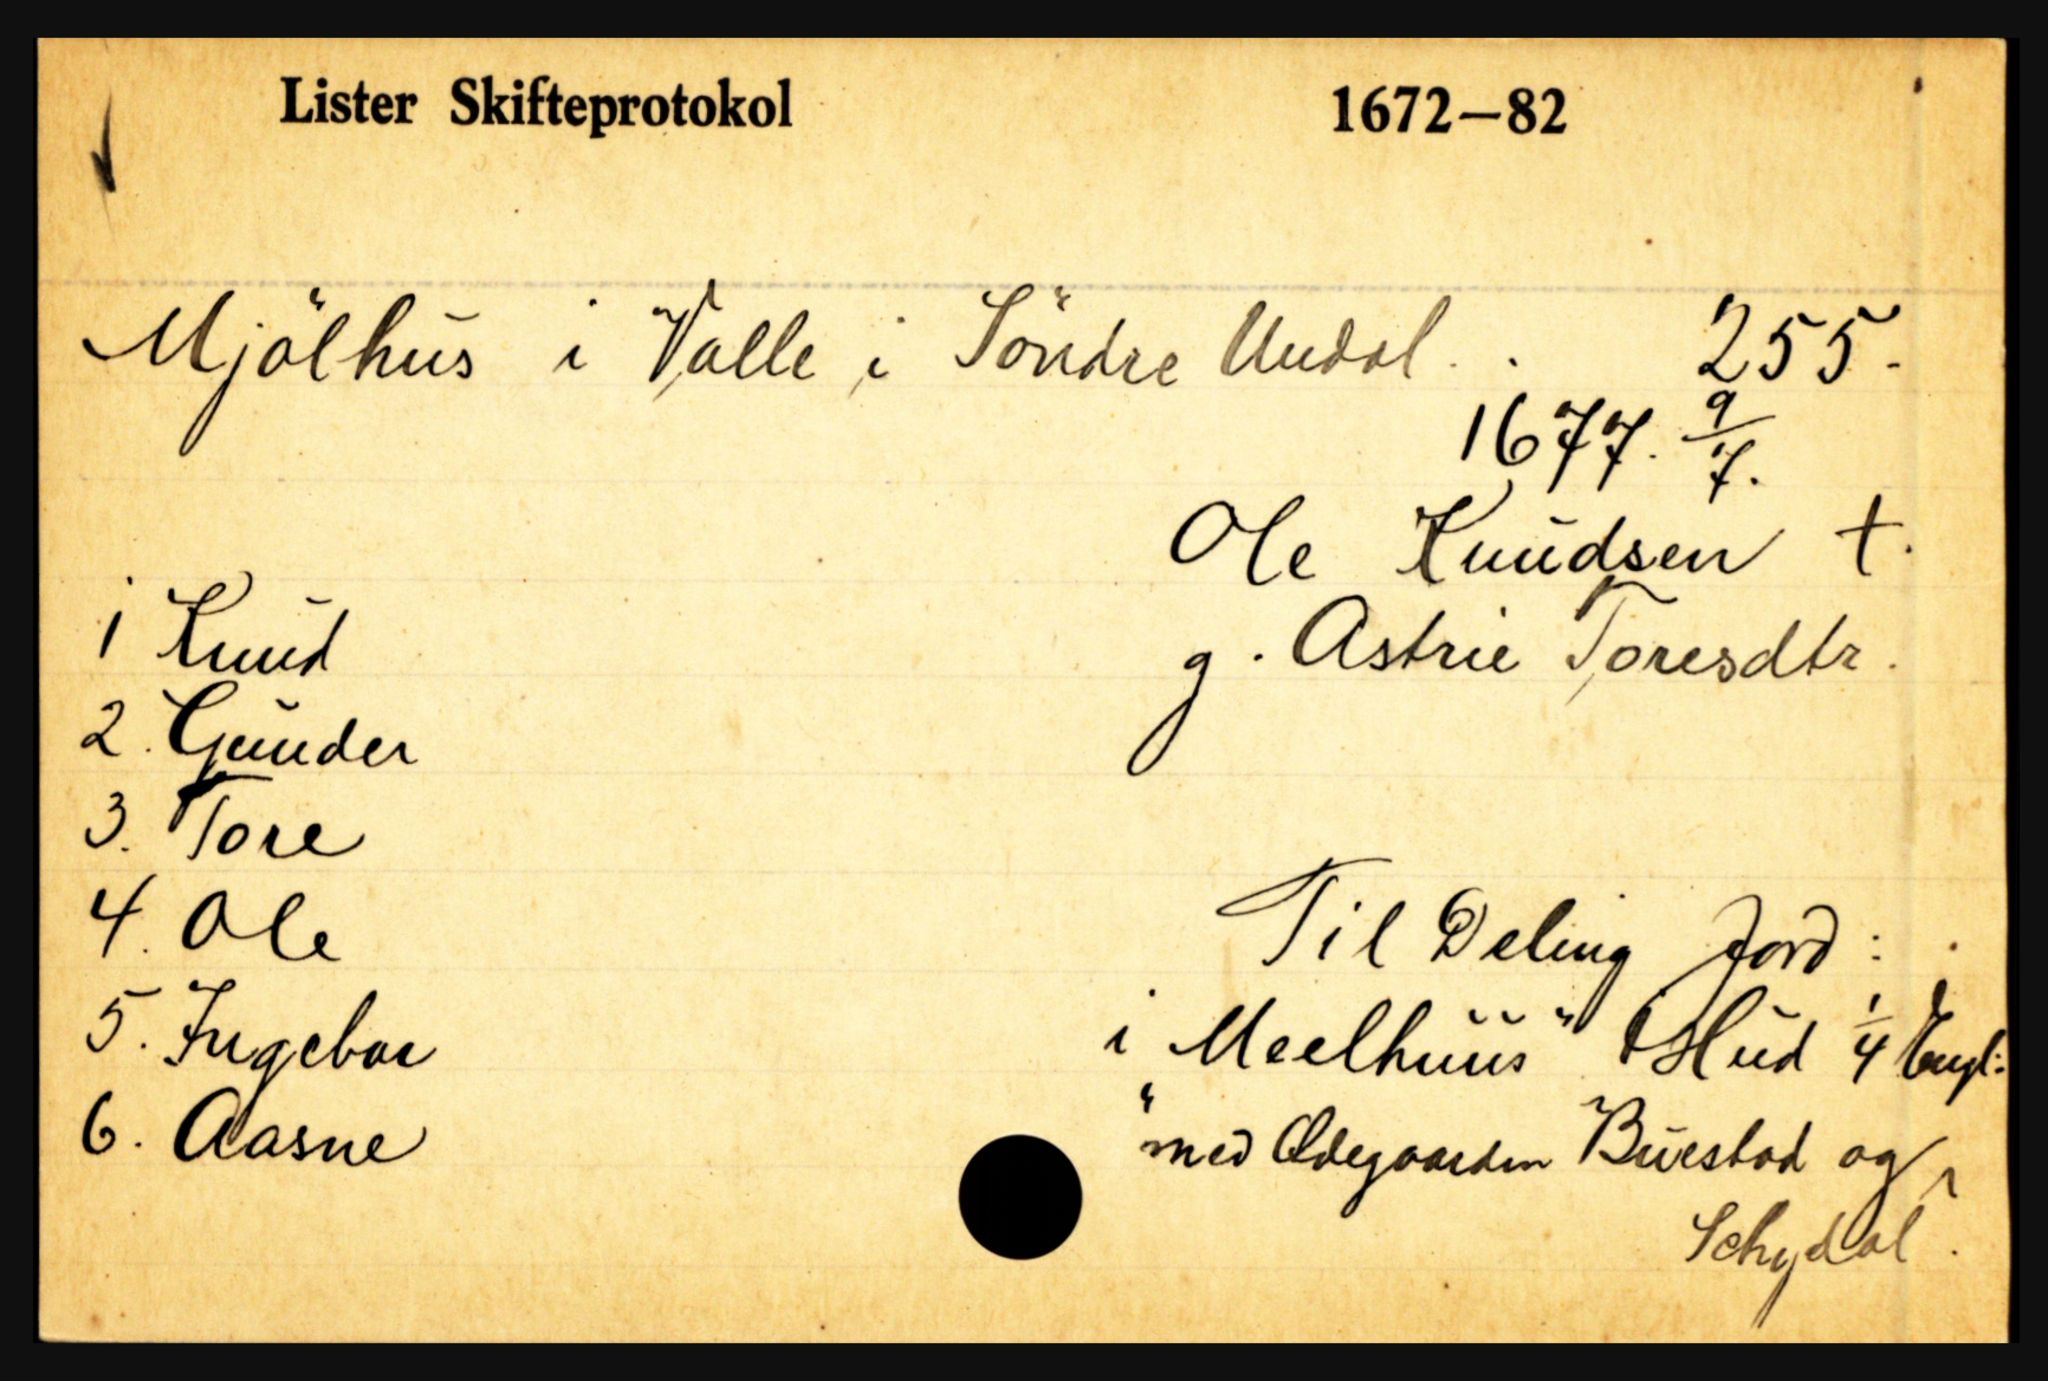 Lister Skifteprotokol 1672—82
Mjölhus i Valle i Söndre Undal. . 255.
1677. 9/7.
Ole Knudsen †.
g. Astrie Toresdtr.
1 Knud
2. Gunder
3. Tore
4. Ole
5. Ingebor
6. Aasne
Til Deling Jord:
i Meelhuus" 1 Hud 1/4 Engl:
"med Ødegaarden Buestad og
Schydal".